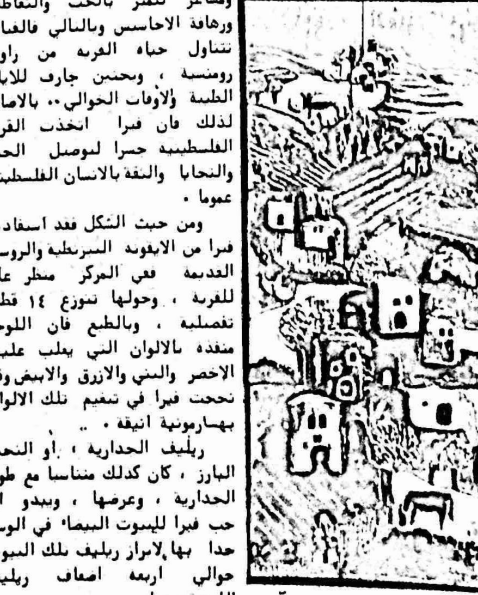 ومشاعر تتميز بالحب والتعاطف
ورهافة الاحاسيس وبالتالي
تتناول حياه القريه من
رومنسية ، وبحنين جارف
الطيبة ولاوقات الخوالي .. بالاضا
لذلك فان فيرا اتخذت القر
الفلسطينية جسرا لتوصيل الحب
والتحايا والثقة بالانسان الفلسطيني
عموما .
ومن حيث الشكل فقد استفاد
فيرا من الايقونه البيزنطية والروس
القديمة ففي المركز منظر عا
للقرية ، وحولها تتوزع ١٤ قط
تفصيلية ، وبالطبع فان اللوح
منفذه بالالوان التي يغلب عليه
الاخضر والبني والازرق والابيض وق
نجحت فيرا في تنغيم تلك الالوا
بهارمونية انيقة .
ريليف الجدارية ، أو النحت
البارز ، كان كذلك متناسبا مع طو
الجدارية ، وعرضها ، ويبدو ا
حب فيرا للبيوت البيضاء في الوس
حدا بها لابراز ريليف تلك البيو
حوالي اربعة اضعاف ريلي